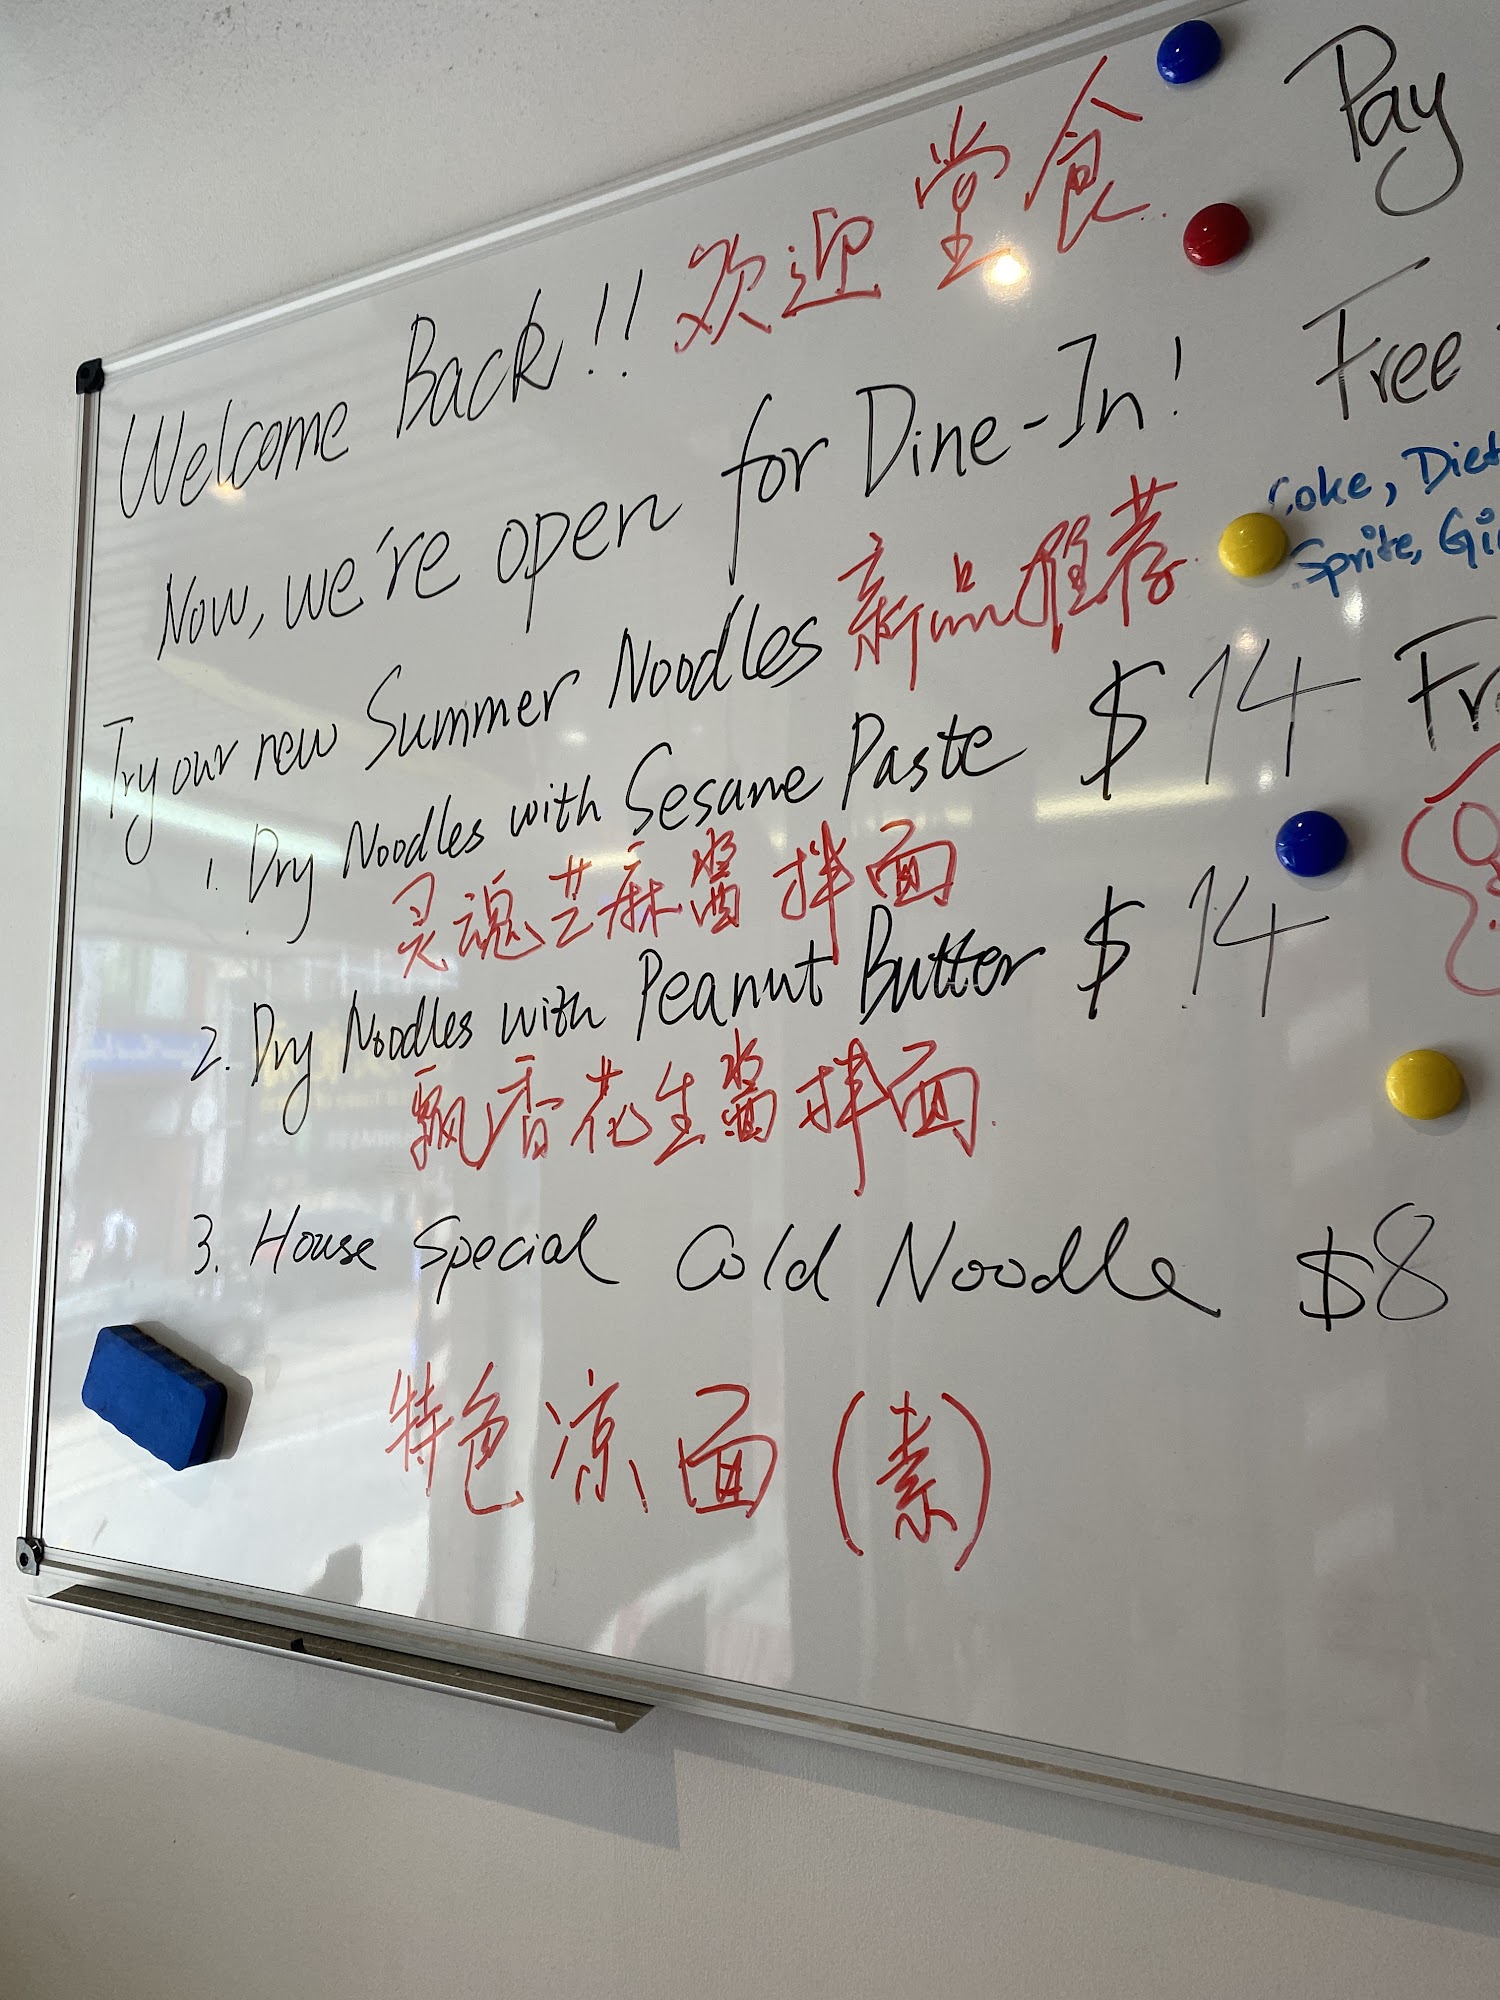 Welcome Back!! 欢迎堂食
Now, we're open for Dine-In!
Try our new Summer Noodles 新品推荐
1. Dry Noodles with Sesame Paste $14
灵魂芝麻酱拌面
2. Dry Noodles with Peanut Butter $14
飘香花生酱拌面
3. House Special Cold Noodle $8
特色凉面(素)
Pay
Free
Coke, Diet
Sprite, Gi
Fr